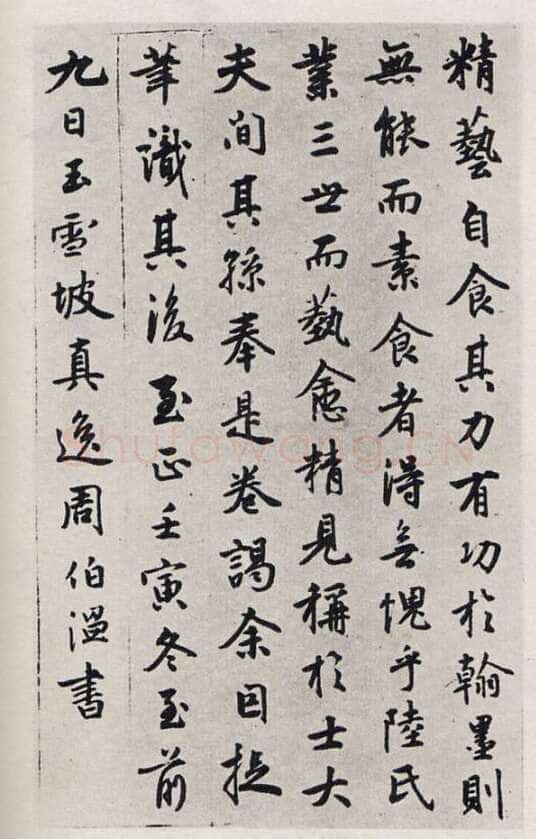 精藝自食其力有功於翰墨則
無能而素食者得無愧乎陸氏
業三世而藝愈精見稱於士大
夫间其孫奉是卷謁余因捉
筆識其後至正壬寅冬至前
九日玉雪坡真逸周伯温書
shufawang.CN